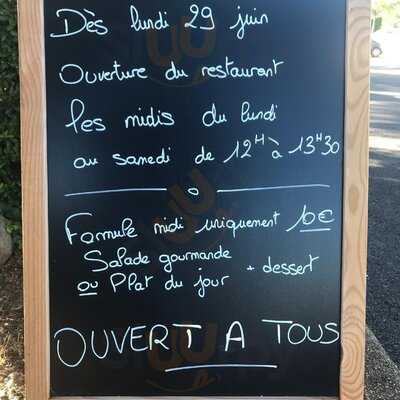 Dès lundi 29 juin
Ouverture du restaurant
les midis du lundi
au samedi de 12H à 13H30
Formule midi uniquement 10€
Salade gourmande
ou Plat du jour + dessert
OUVERT A TOUS